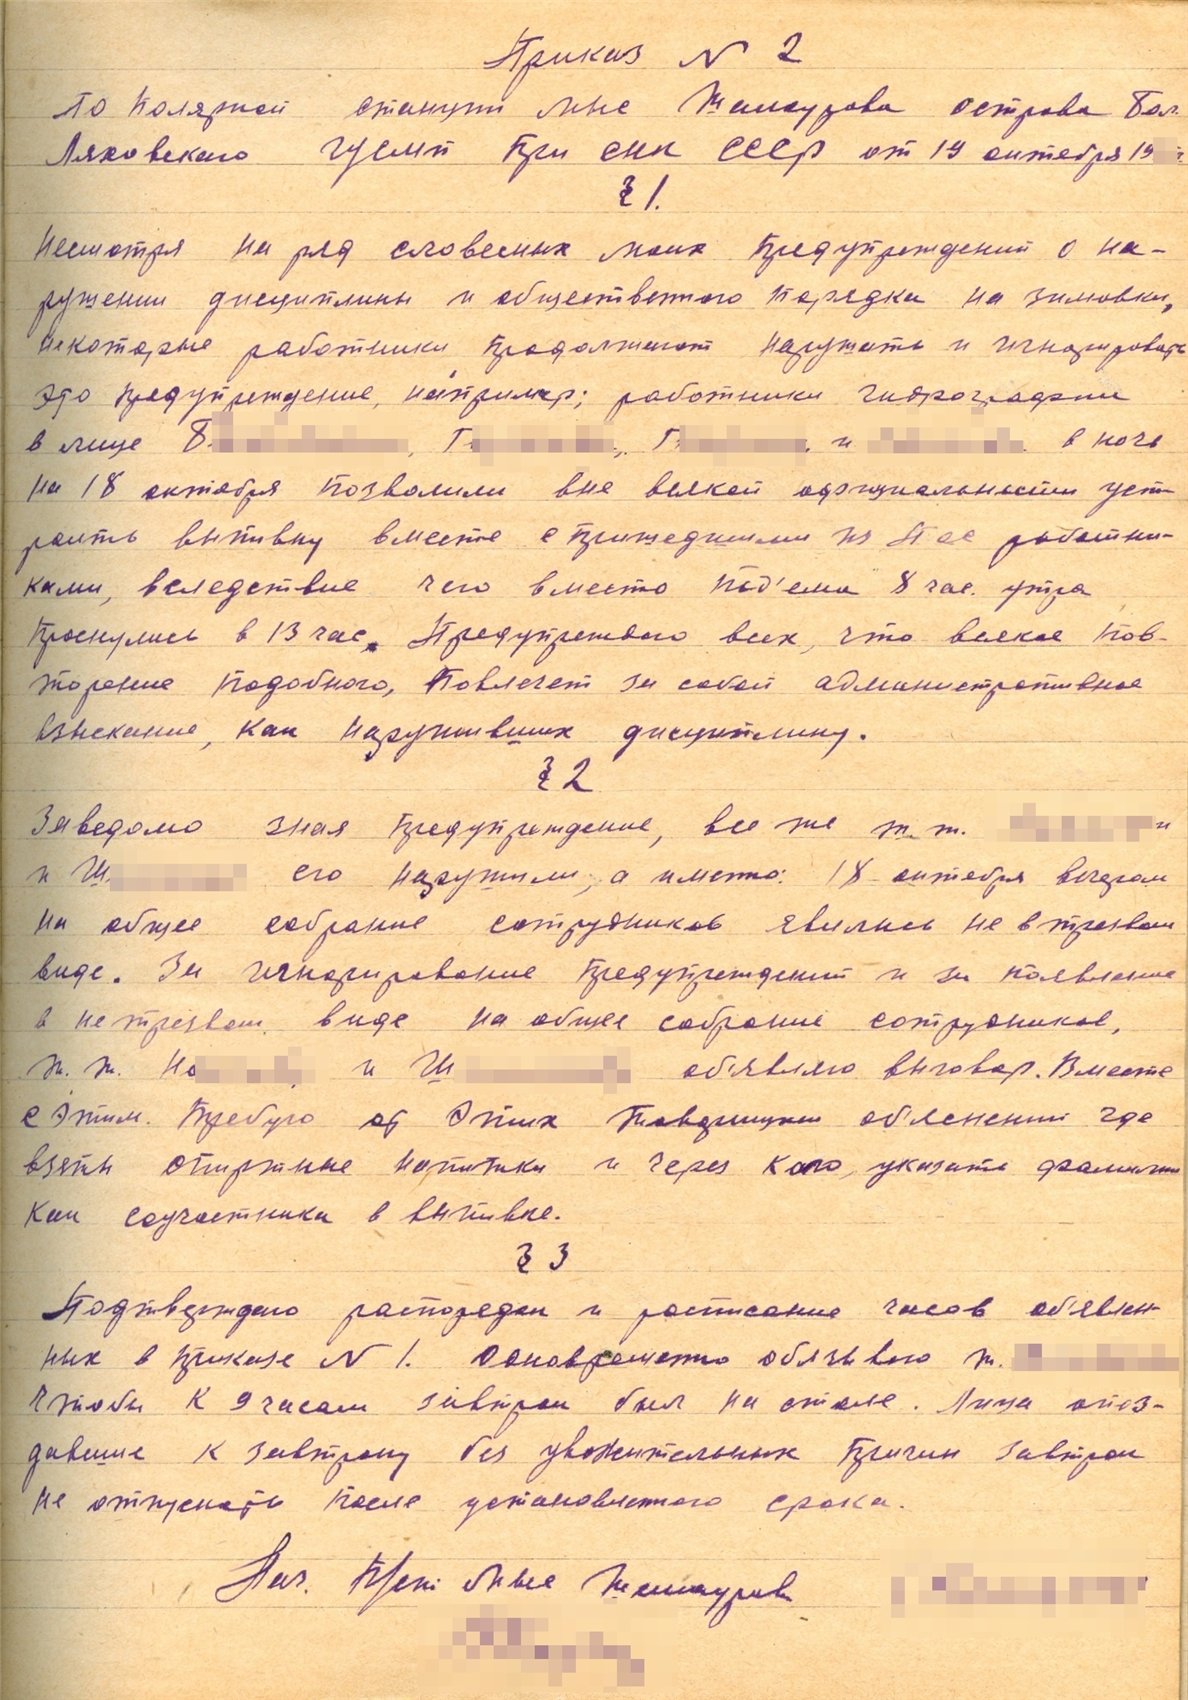 Приказ N 2
По Полярной станции мыс Шалаурова острова Бол.
Ляховского ГУСМП при СНК СССР от 19 октября 19
§ 1.
Несмотря на ряд словесных моих предупреждений о на-
рушении дисциплины и общественного порядка на зимовки,
некоторые работники продолжают нарушать и игнорировать
это предупреждение, например; работники гидрографии
в лице Б , Г , Г , и в ночь
на 18 октября позволили вне всякой официальности уст-
роить выпивку вместе с пришедшими из работни-
ками, вследствие чего вместо под'ема 8 час. утра
проснулись в 13 час. Предупреждаю всех, что всякое пов-
торение подобного, повлечет за собой административное
взыскание, как нарушивших дисциплину.
§ 2
Заведомо зная предупреждение, все же т.т.
и Ш его нарушили, а именно: 18 октября вечером
на общее собрание сотрудников явились не в трезвом
виде. За игнорирование предупреждений и за появление
в не трезвом виде на общее собрание сотрудников,
т. т. Но и Ш об'являю выговор. Вместе
с этим. Требую от этих товарищей обяснений где
взяты спиртные напитки и через кого, указать фамилии
как соучастника в выпивке.
§ 3
Подтверждаю распорядок и расписание часов об'явлен-
ных в приказе N 1. Одновременно обязываю т.
чтобы к 9 часам завтрак был на столе. Лица опоз-
давшие к завтраку без уважительных причин завтрак
не отпускать после установленного срока.
Нач. П/ст мыс Шалаурова